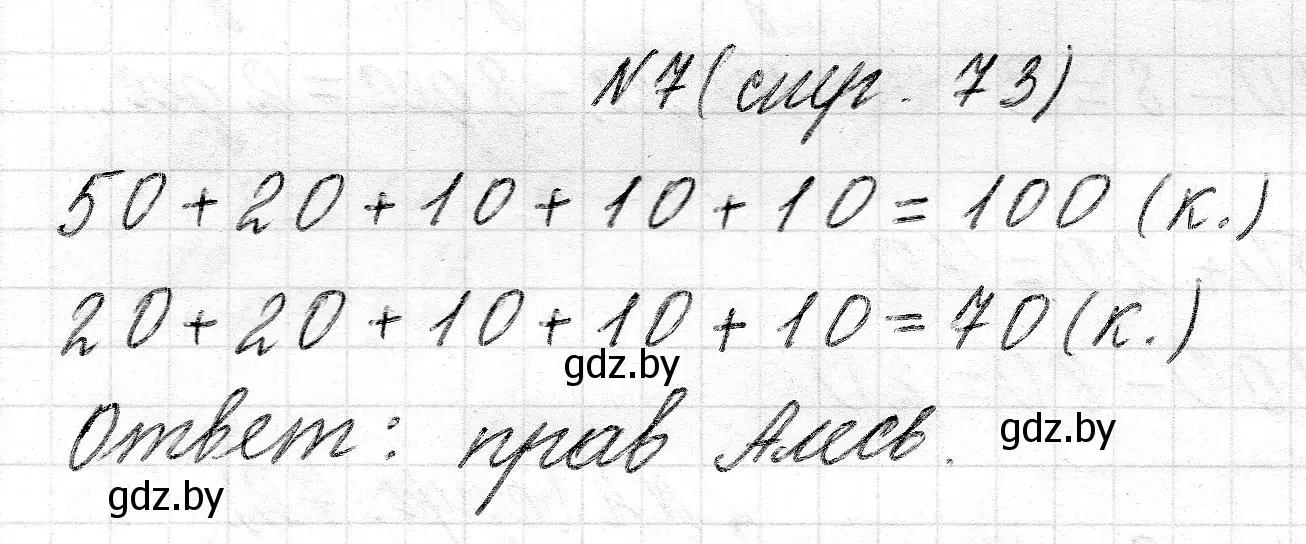 N7(стр. 73)
50+20+10+10+10=100 (к.)
20+20+10+10+10=70(к.)
gdz.by
Ответ: прав Алесь.
gdz.by
gdz.by